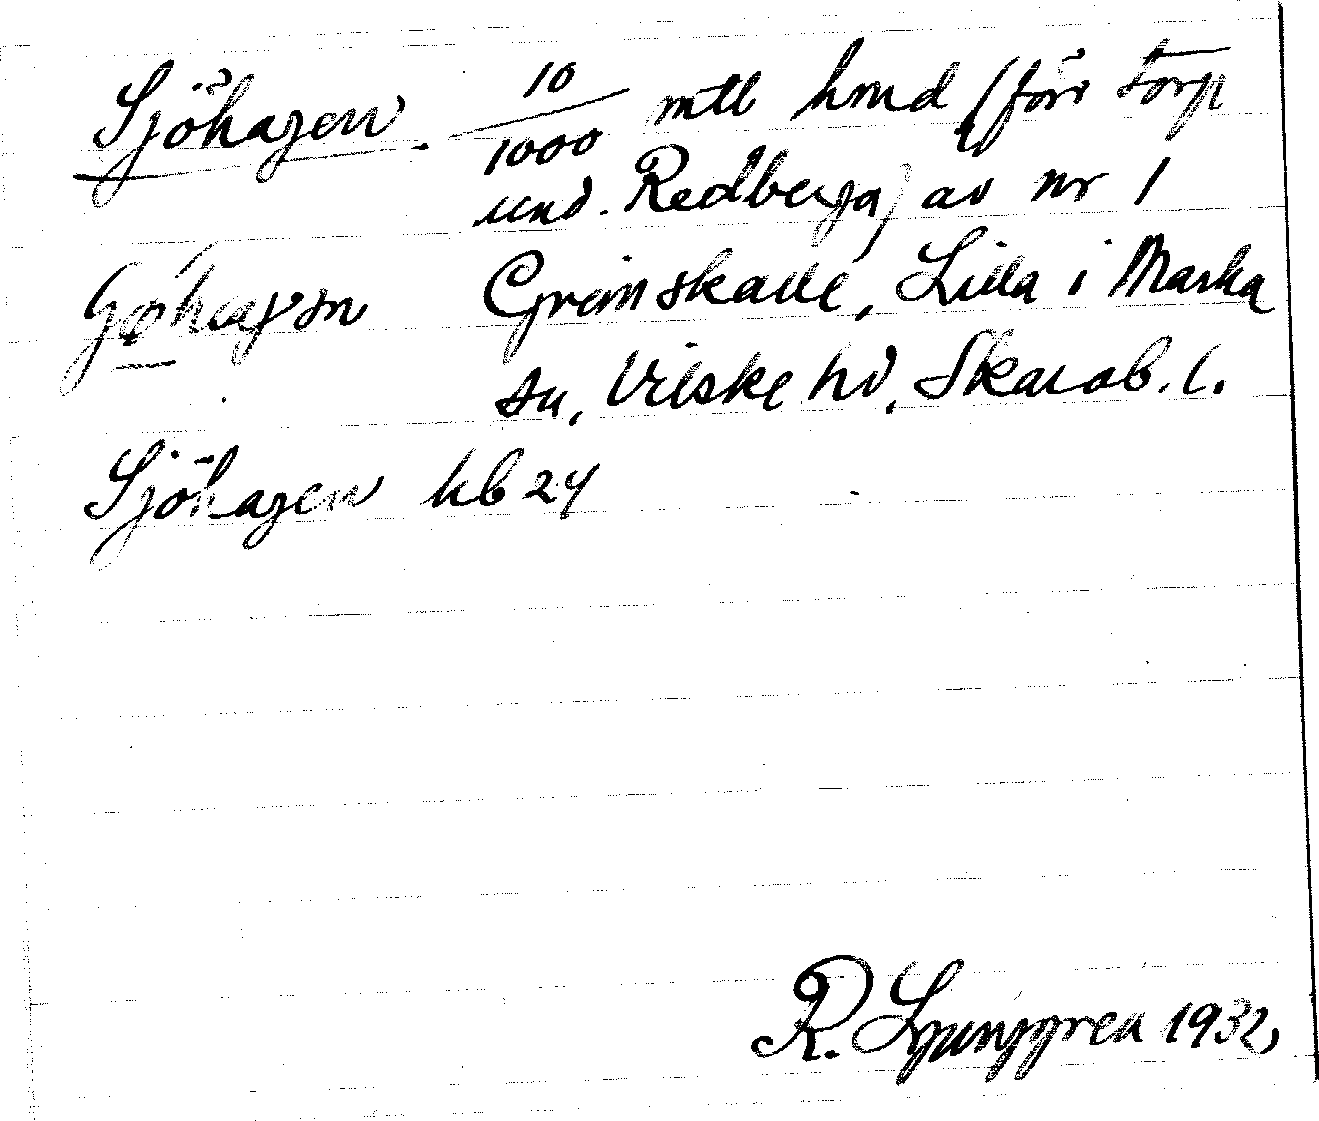 Sjöhagen. 10/1000 mtl hmd (förr torp
und. Redberga) av nr 1
Grimskalle, Lilla i Marka
sn, Vilske hd, Skarab. l.
Sjöhagen hb 24
R. Ljunggren 1932